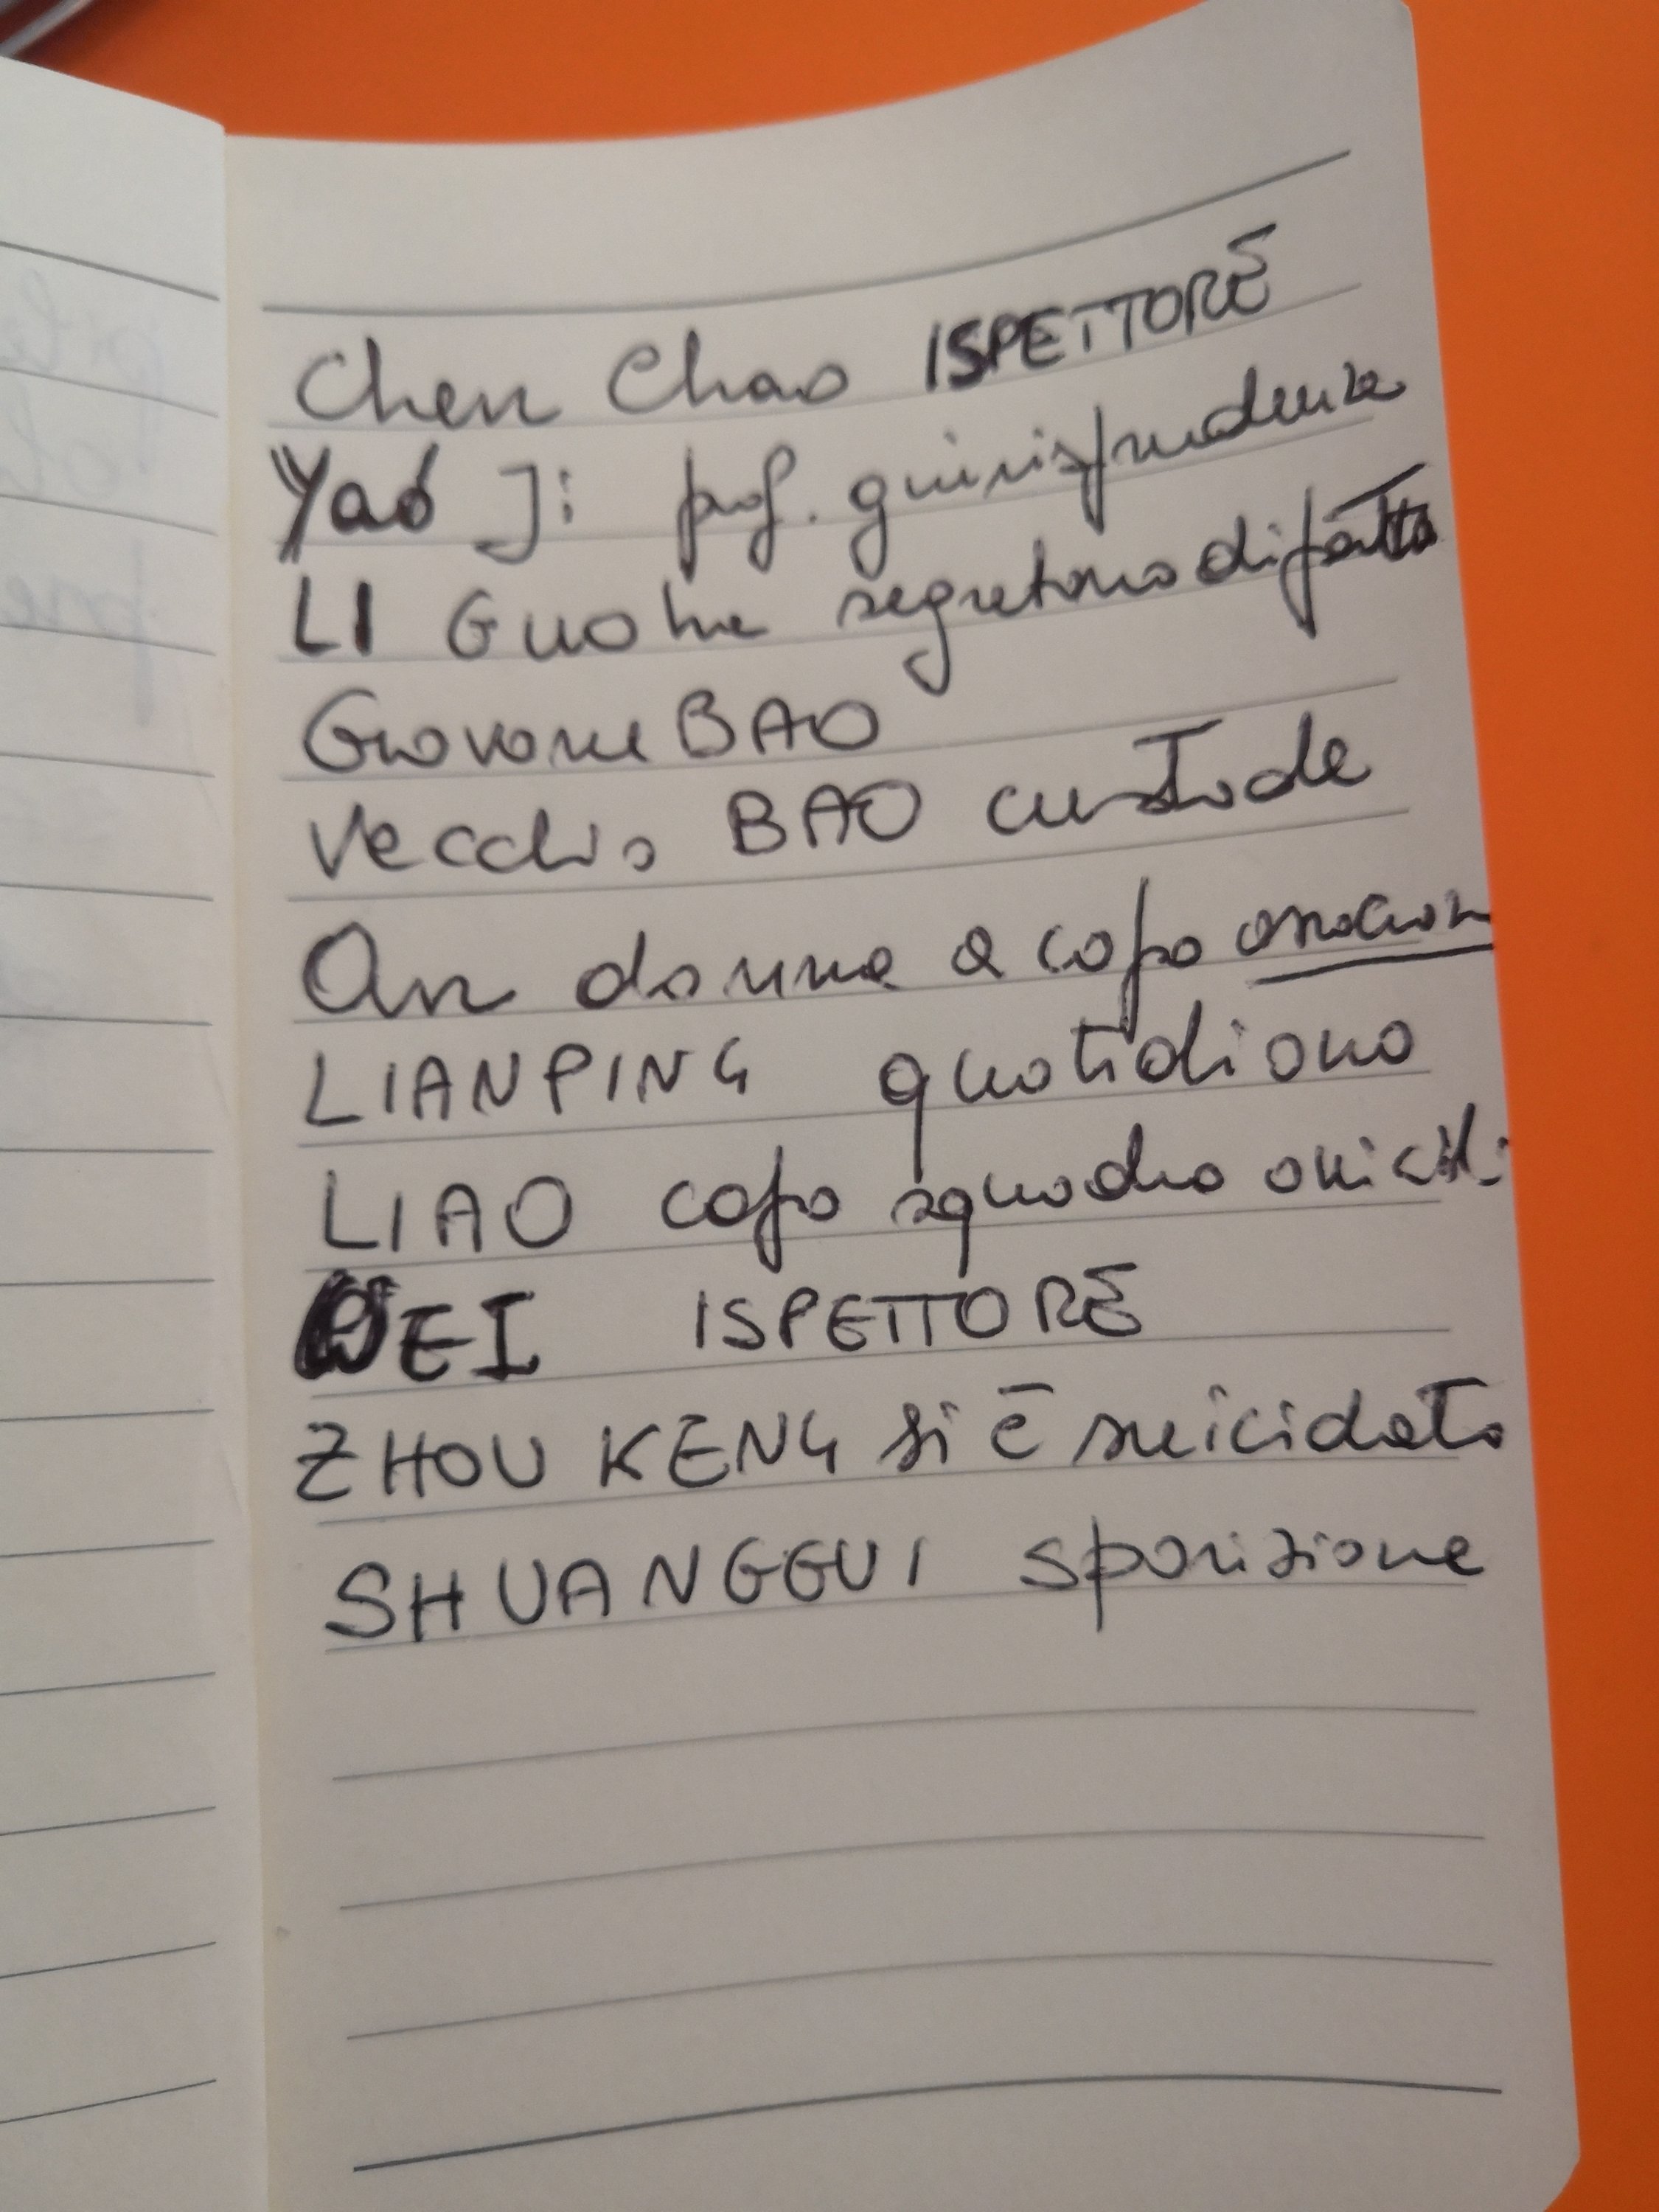 Chen Chao ISPETTORE
Yao Ji: prof. giurisprudenza
LI Guohua segretario di fatto
Giovane BAO
Vecchio BAO custode
An donna a capo
LIANPING quotidiano
LIAO capo squadra omicidi
WEI ISPETTORE
ZHOU KENG si è suicidato
SHUANGGUI sparizione